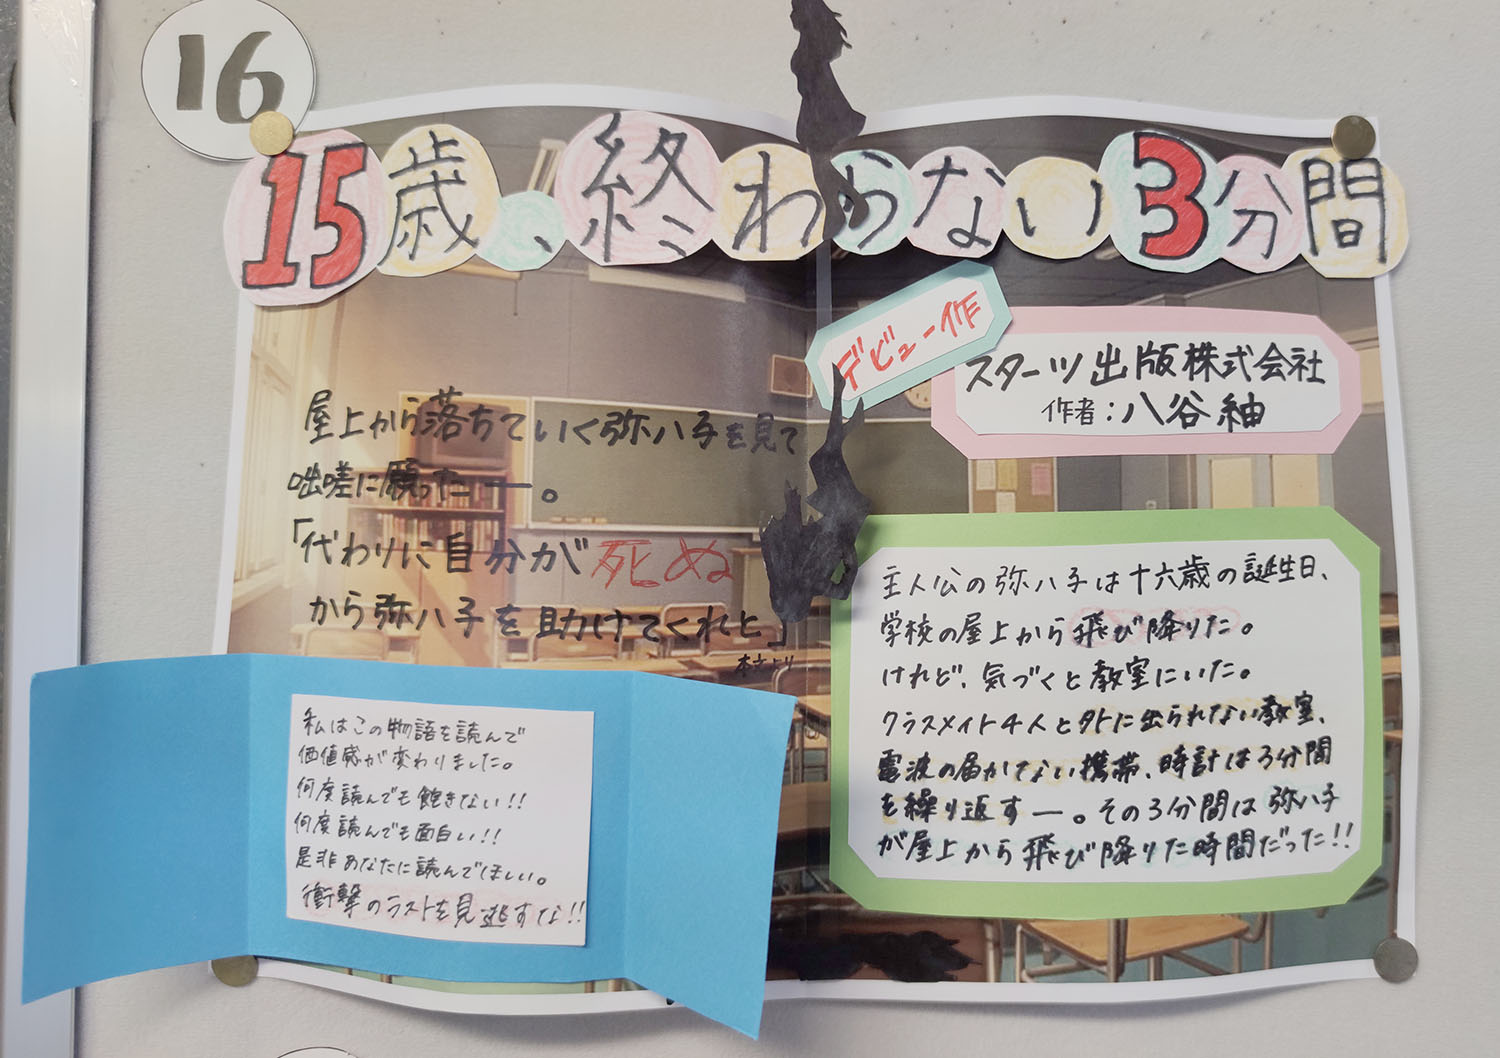 16
15歳、終わらない3分間
デビュー作
スターツ出版株式会社
作者：八谷紬
屋上から落ちていく弥八子を見て
咄嗟に願ったー。
「代わりに自分が死ぬ
から弥八子を助けてくれと」
本文より
主人公の弥八子は十六歳の誕生日、
学校の屋上から飛び降りた。
けれど、気づくと教室にいた。
クラスメイト4人と外に出られない教室、
電波の届かない携帯、時計は3分間
を繰り返すー。その3分間は弥八子
が屋上から飛び降りた時間だった!!
私はこの物語を読んで
価値感が変わりました。
何度読んでも飽きない!!
何度読んでも面白い!!
是非あなたに読んでほしい。
衝撃のラストを見逃すな!!